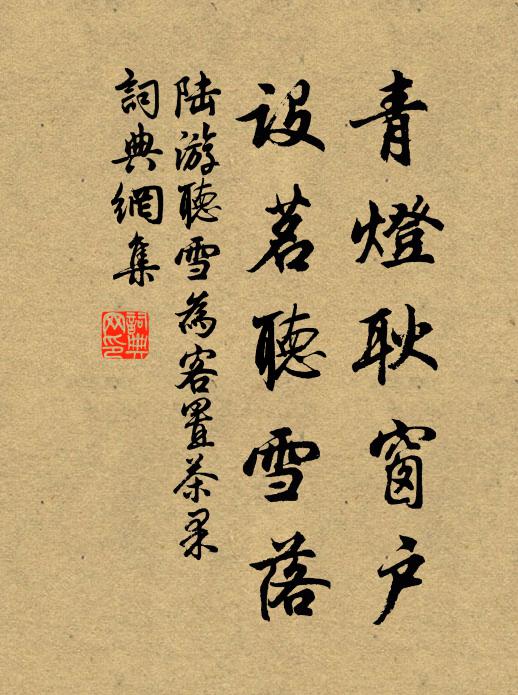 青燈耿窗户
設茗聽雪落
陸游聽雪為客置茶果
詞典網集
詞典网印